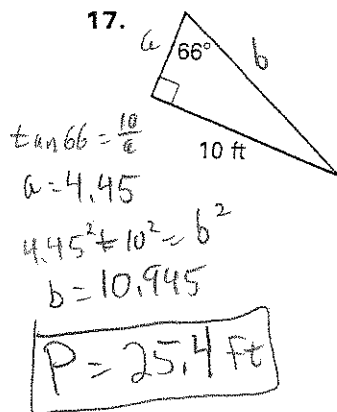 17.
a 66° b
10 ft
tan 66 = 10/a
a = 4.45
4.45² + 10² = b²
b = 10.945
P = 25.4 ft